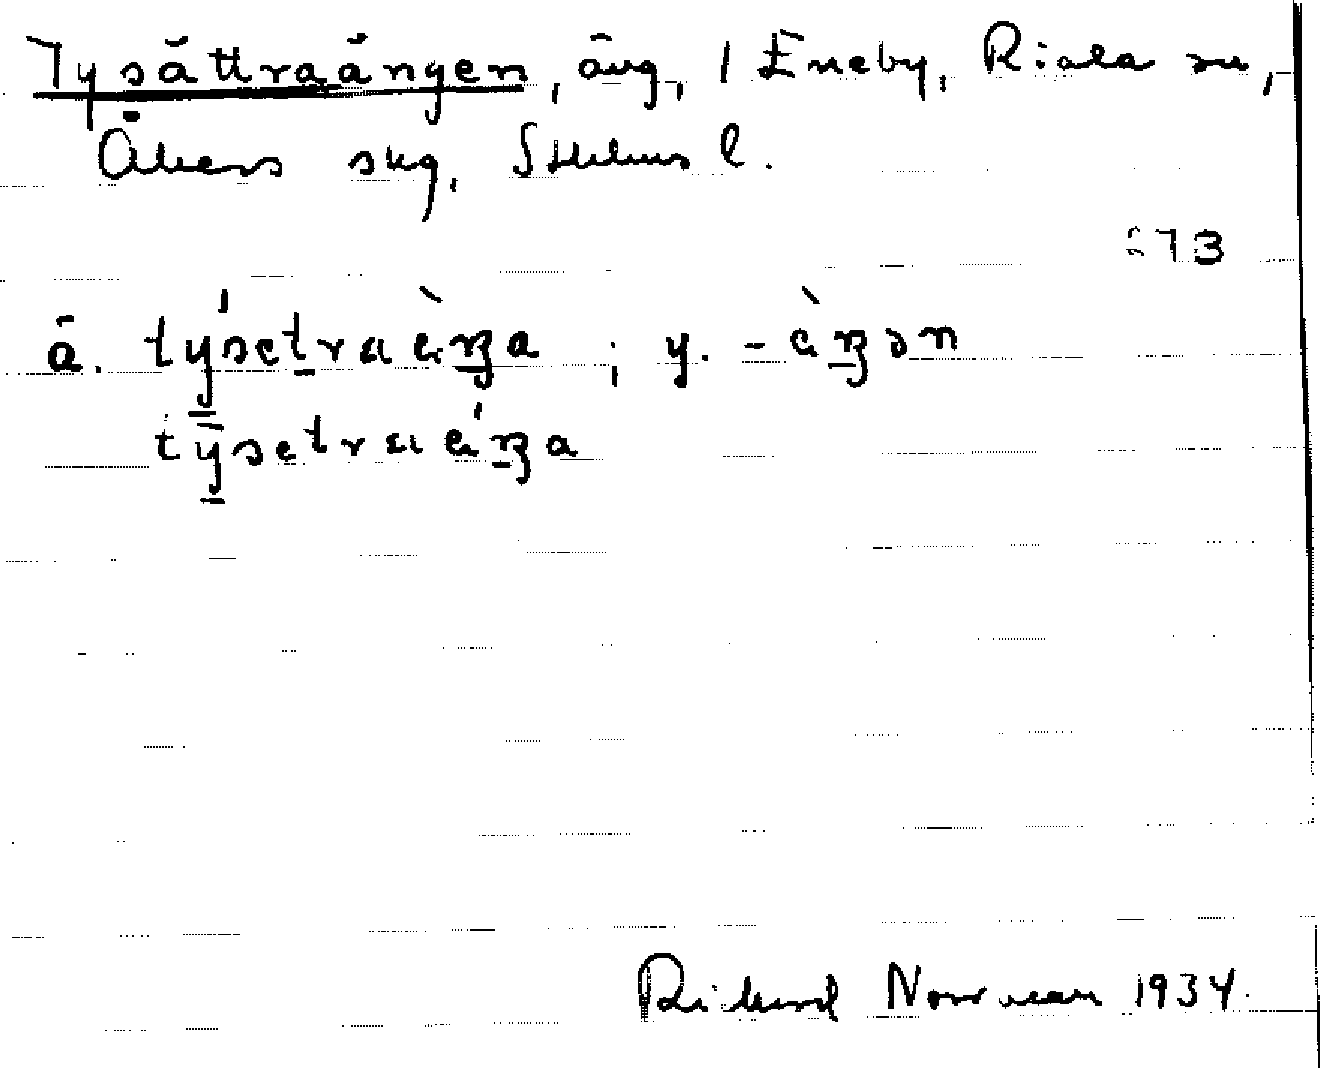 Tysättraängen, äng, i Eneby, Riala sn,
Åkers skg, Sthlms l.
73
ä. tý̱sɛtraɛ̀ŋa ; y. -ɛ̀ŋən
tȳ̱sɛtraɛ́ŋa
Rickard Norrman 1934.